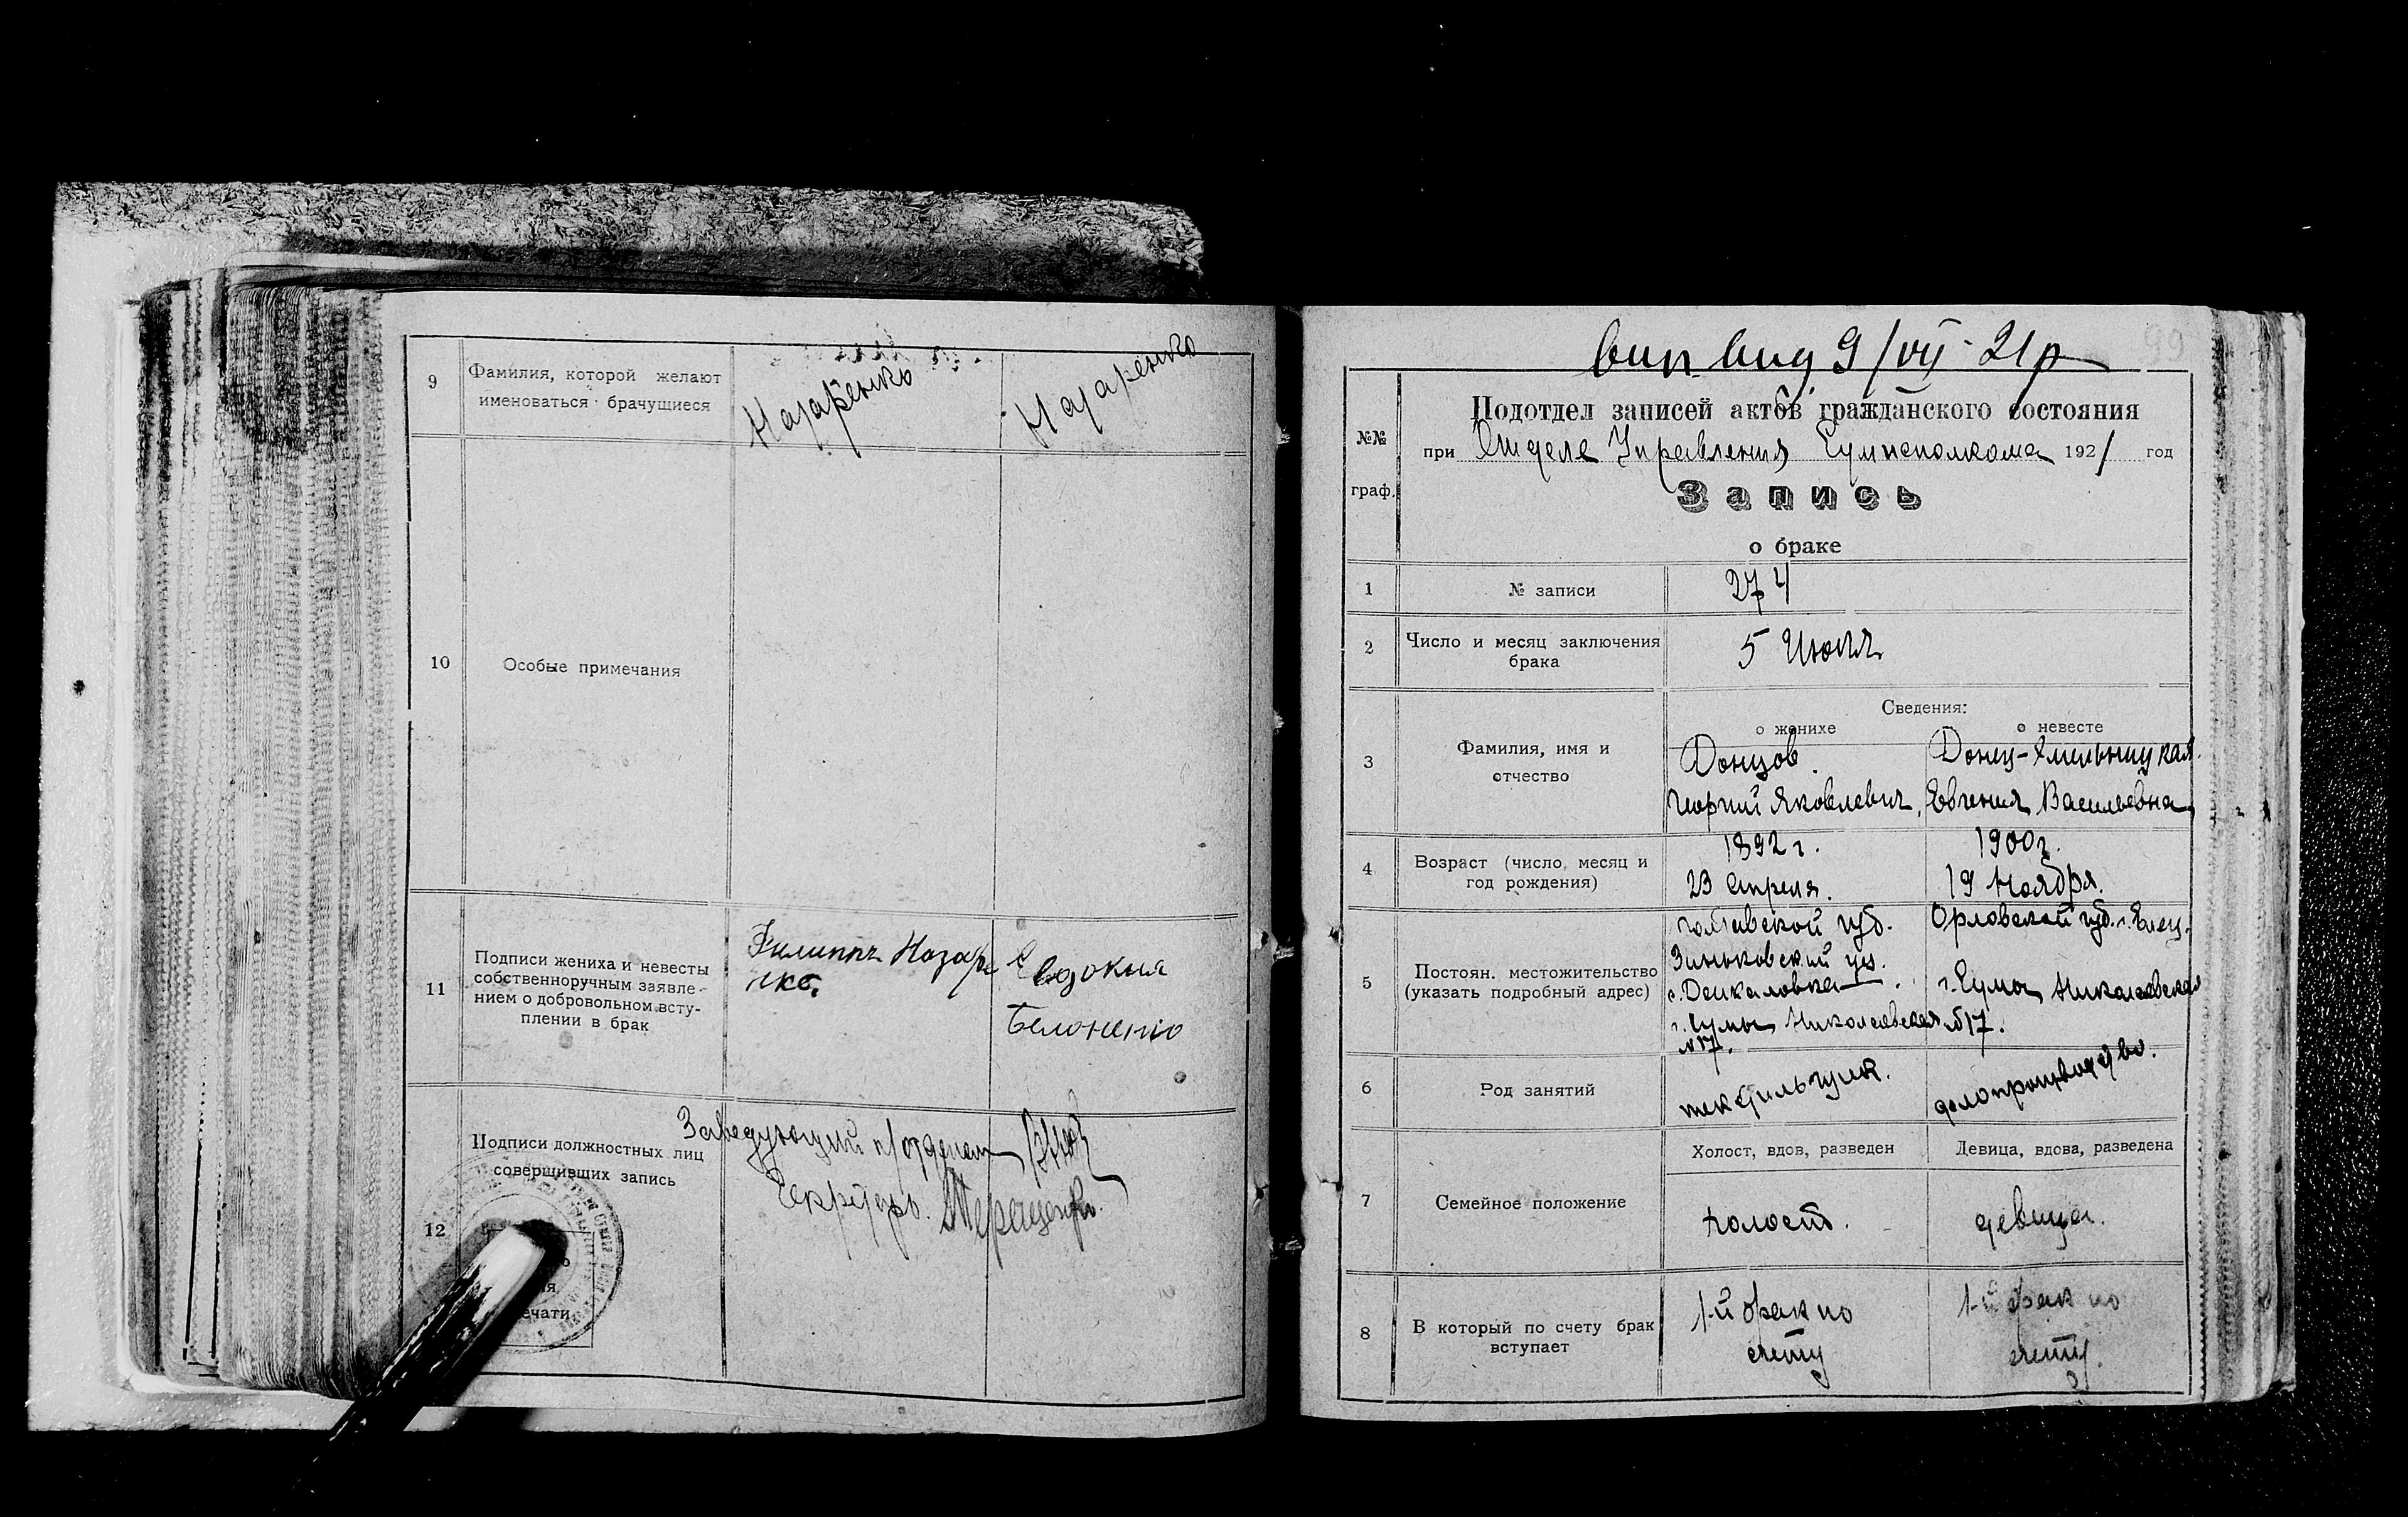 9
Фамилия, которой желают
именоваться брачущиеся
Назаренко
Назаренко
10
Особые примечания
11
Подписи жениха и невесты
собственноручным заявле-
нием о добровольном всту-
плении в брак
Филиппъ Назаре
нко,
Евдокия
Белоненко
12
Подписи должностных лиц
совершивших запись
Заведующий п/отделом
Секретарь. Терещенко.
ечати
вип. вид 9/VII 21 р
99
№№
граф.
Подотдел записей актов гражданского состояния
при Отделе Управления Сумисполкома 1921 год
Запись
о браке
1
№ записи
274
2
Число и месяц заключения
брака
5 Июля
3
Фамилия, имя и
отчество
Сведения:
о женихе
о невесте
Донцов.
Георгий Яковлевич,
Донец-Хмельницкая.
Евгения Васильевна
4
Возраст (число, месяц и
год рождения)
1892 г.
23 Апреля.
1900 г.
19 Ноября.
5
Постоян. местожительство
(указать подробный адрес)
Полтавской губ.
Зиньковский уез.
с. Дейкаловка.
г. Сумы Николаевская
№17.
Орловской губ. г. Елец.
г. Сумы Николаевская
№17.
6
Род занятий
текстильщик.
делопроизводство.
7
Семейное положение
Холост, вдов, разведен
Девица, вдова, разведена
холост.
девица.
8
В который по счету брак
вступает
1-й брак по
счету
1-й брак по
счету.